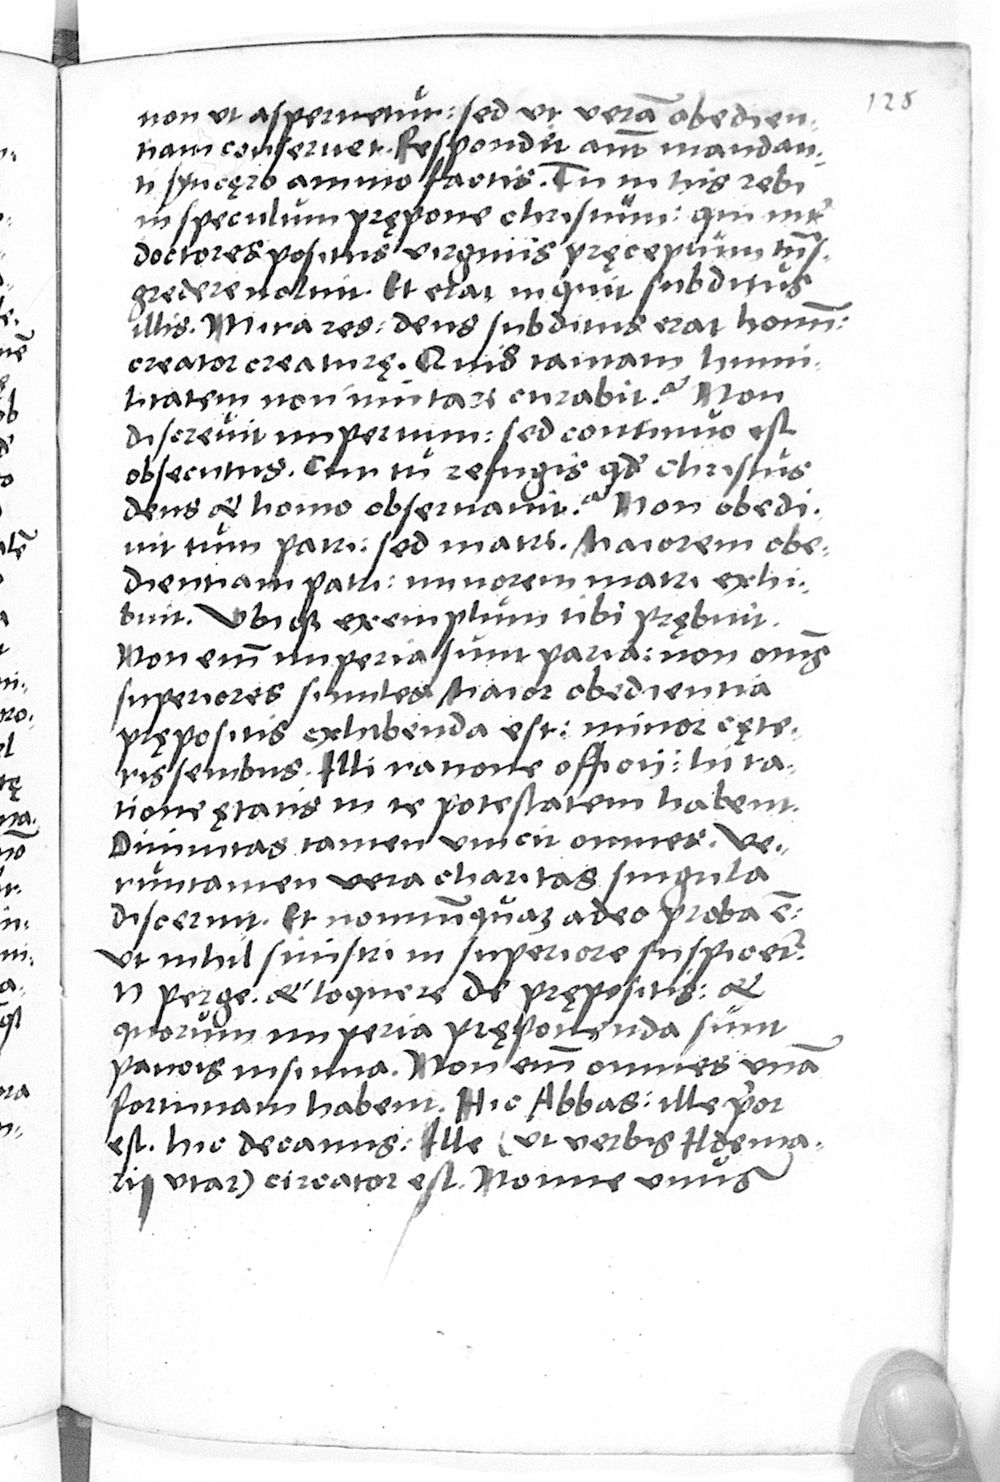 128
non vt aspernetur: sed vt verā obedien-
tiam conseruet. Respondit aūt mandan-
ti syncęro animo factis. Tu in his rebꝰ
in speculum prępone christum: qui int̄
doctores positus virginis pręceptum trās-
gredere noluit. Et erat inquit subditus
illis. Mira res: deus subditus erat homī:
creator creaturę. Quis tantam humi-
litatem non imitari curabit? Non
discreuit imperium: sed continuo est
obsecutus. Cur tu refugis qd̄ Christus
deus & homo obseruauit? Non obedi-
uit tum patri: sed matri. Maiorem obe-
dientiam patri: minorem matri exhi-
buit. Vbiqȝ exemplum tibi prębuit.
Non em̄ imperia sunt paria: non om̄s
superiores similes. Maior obedientia
prępositis exhibenda est: minor cęte-
ris senibus. Illi ratione officij: hi ra-
tione ętatis in te potestatem habent.
Diuinitas tamen vincit omnes. Ve-
runtamen vera charitas singula
discernit. Et nonnūquaȝ adeo proba ē:
vt nihil sinistri in superiore suspicer̄.
perge. & loquere de prępositis: &
quorum imperia pręponenda sunt
paucis insinua. Non em̄ omnes vnā
fortunam habent. Hic Abbas: ille p̄or
est. hic decanus: Ille (vt verbis Ildema-
rij vtar) circator est. Nonne vnus